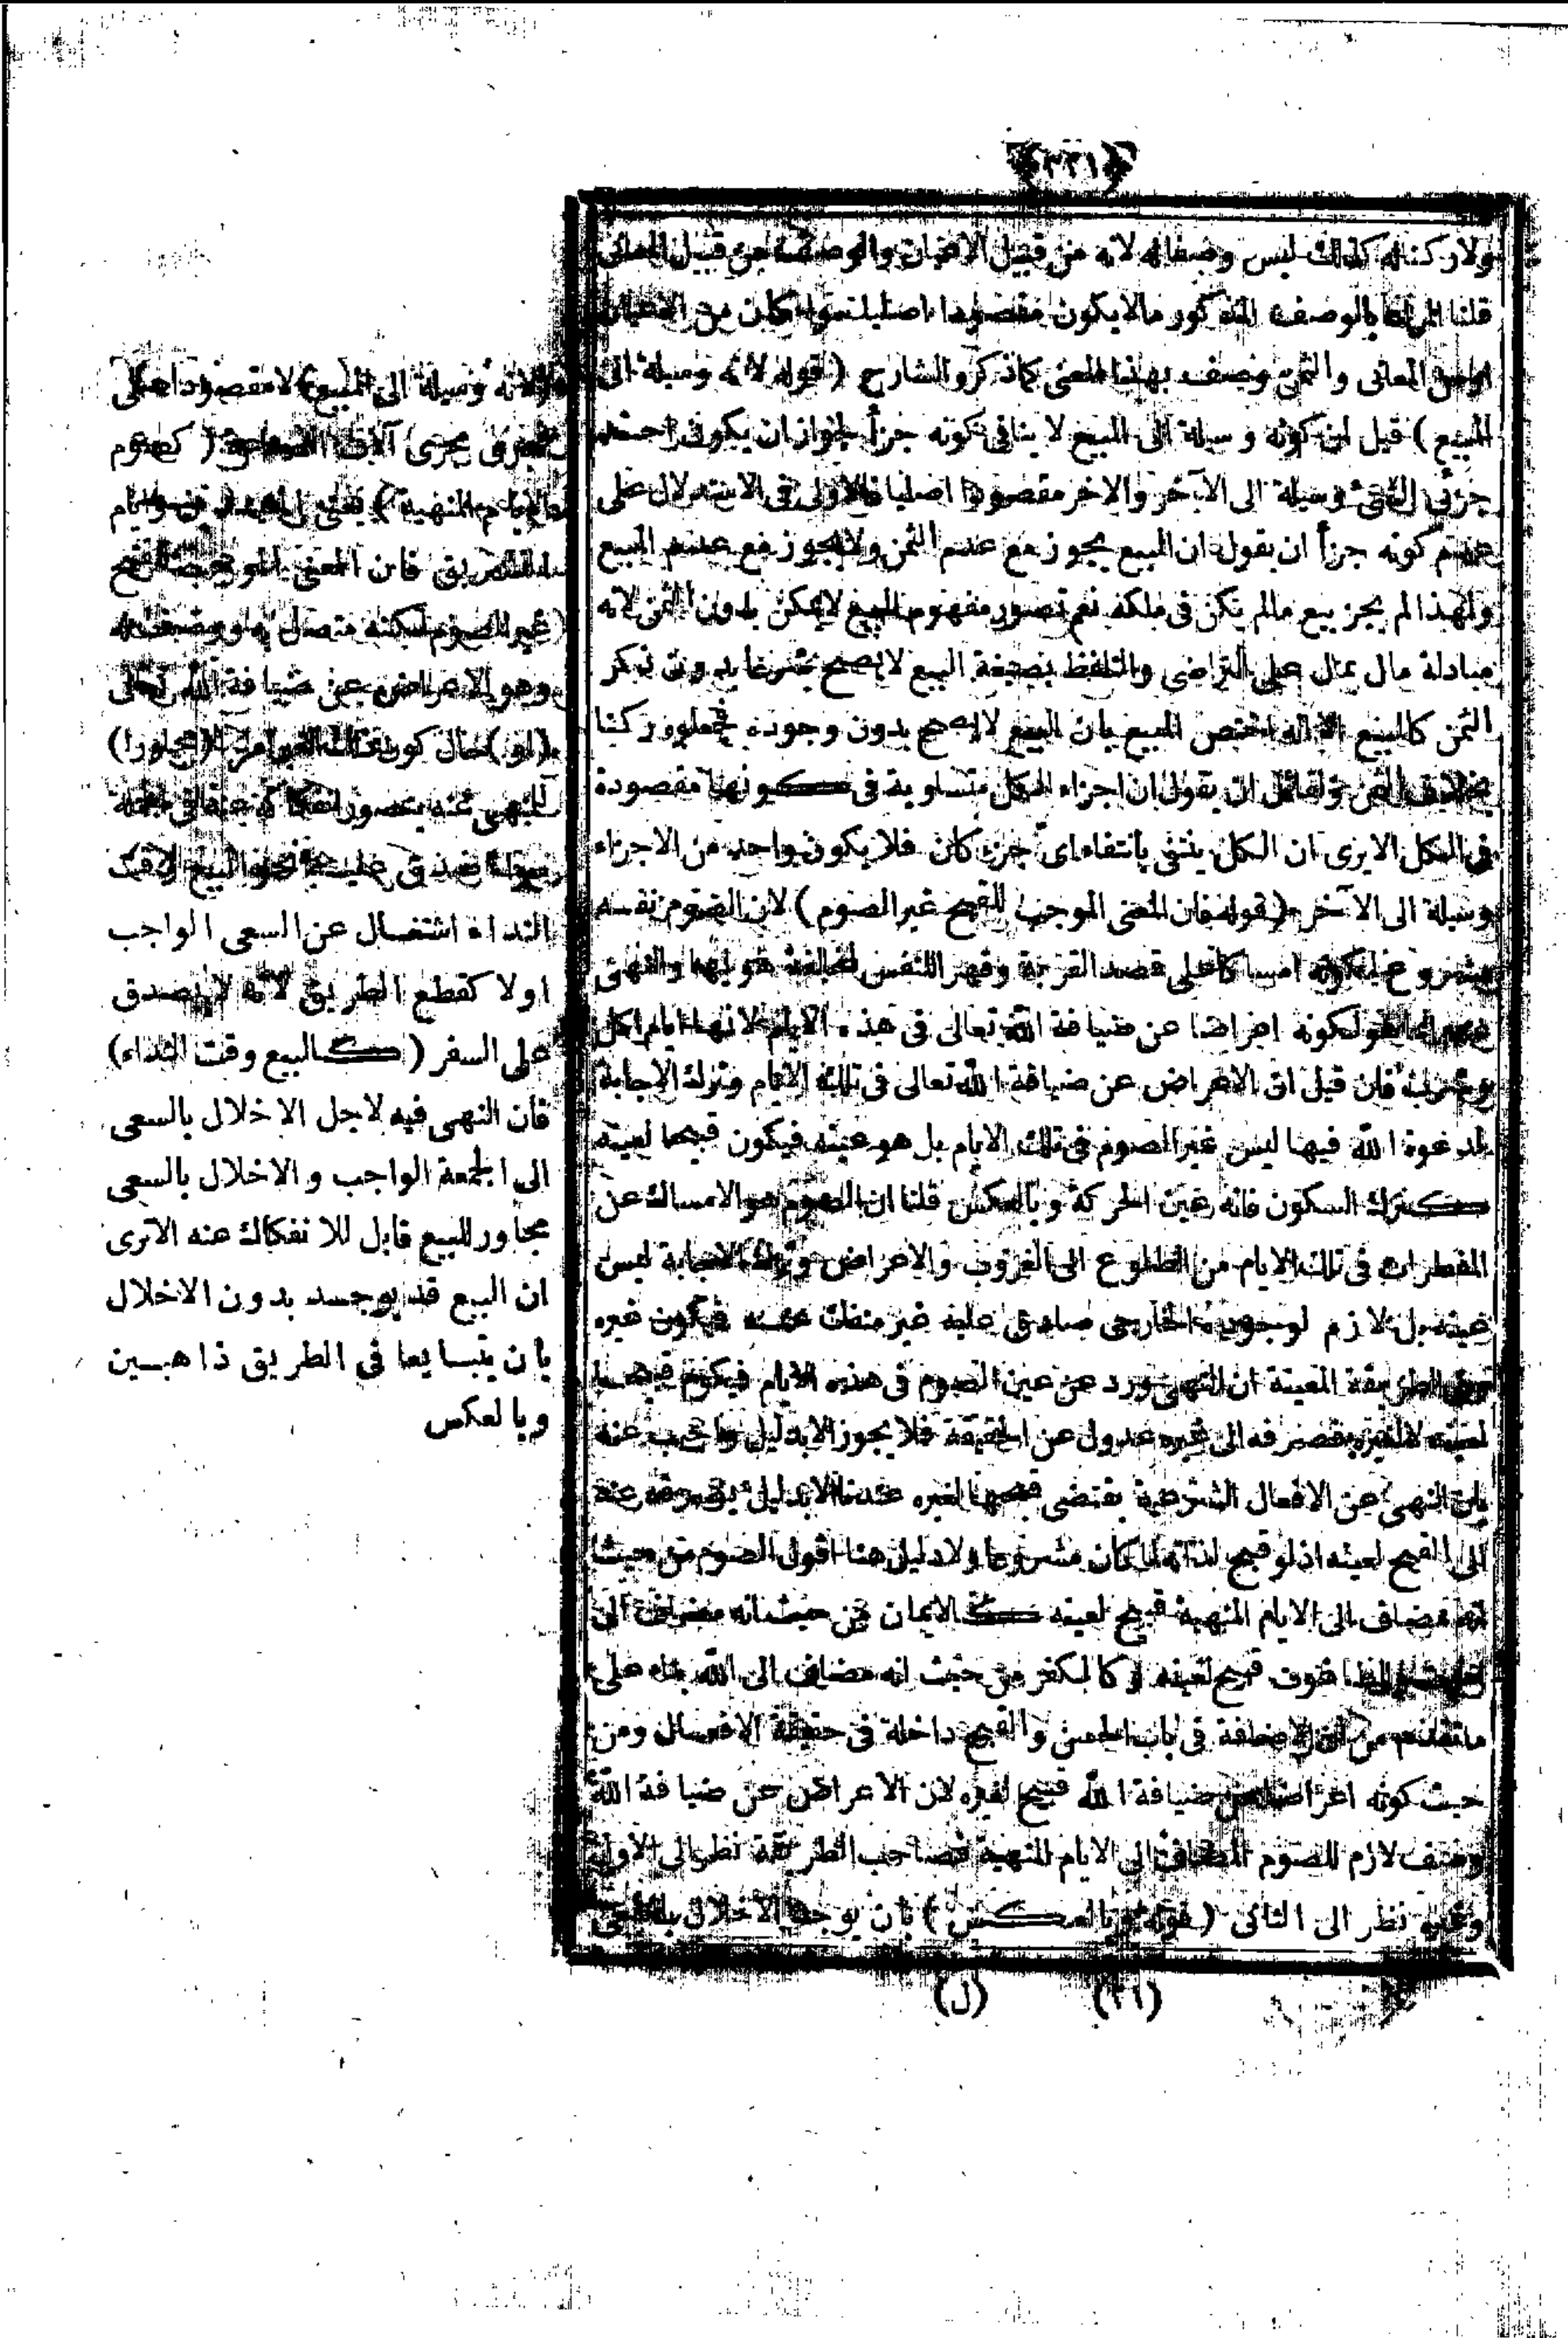 ﴿٣٢١﴾
ولا ركنا له كذلك ليس وصفا له لانه من قبيل الاعيان والوصف من قبيل المعانى
قلنا المراد بالوصف المذكور مالا يكون مقصودا اصليا سواء كان من الاعيان
المعانى والثمن وصف بهذا المعنى كما ذكره الشارح ( قوله لانه وسيلة الى
المبيع ) قيل ان كونه وسيلة الى المبيع لا ينافى كونه جزأ لجواز ان يكون احد
جزئى الشئ وسيلة الى الآخر والاخر مقصودا اصليا فالاولى فى الاستدلال على
عدم كونه جزأ ان يقول ان البيع يجوز مع عدم الثمن ولا يجوز مع عدم المبيع
ولهذا لم يجز بيع مالم يكن فى ملكه نعم تصور مفهوم البيع لا يمكن بدون الثمن لانه
مبادلة مال بمال على التراضى والتلفظ بصيغة البيع لا يصح شرعا بدون ذكر
الثمن كالمبيع الا انه اختص المبيع بان البيع لا يصح بدون وجوده فجعلوه ركنا
بخلاف الثمن ولقائل ان يقول ان اجزاء الكل متساوية فى كونها مقصودة
فى الكل الا يرى ان الكل ينتفى بانتفاء اى جزء كان فلا يكون واحد من الاجزاء
وسيلة الى الآخر ( قوله فان المعنى الموجب للقبح غير الصوم ) لان الصوم نفسه
مشروع لكونه امساكا على قصد القربة وقهر النفس لمخالفة هويها والنهى
لكونه اعراضا عن ضيافة الله تعالى فى هذه الايام لانها ايام اكل
وشرب فان قيل ان الاعراض عن ضيافة الله تعالى فى تلك الايام وترك الاجابة
لدعوة الله فيها ليس غير الصوم فى تلك الايام بل هو عينه فيكون قبيحا لعينه
كترك السكون فانه عين الحركة وبالعكس قلنا ان الصوم هو الامساك عن
المفطرات فى تلك الايام من الطلوع الى الغروب والاعراض وترك الاجابة ليس
عينه بل لازم لوجوده الخارجى صادق عليه غير منفك عنه فيكون غيره
الطريقة المعينة ان النهى ورد عن عين الصوم فى هذه الايام فيكون قبيحا
لعينه لا لغيره فصرفه الى غيره عدول عن الحقيقة فلا يجوز الا بدليل واجيب عنه
بان النهى عن الافعال الشرعية يقتضى قبحها لغيره عندنا الا بدليل يصرفه عنه
الى القبح لعينه اذ لو قبح لذاته لما كان مشروعا ولا دليل هنا اقول الصوم من حيث
انه مضاف الى الايام المنهية قبيح لعينه كالايمان من حيث انه مضاف الى
الطاغوت قبيح لعينه او كالكفر من حيث انه مضاف الى الله بناء على
ما تقدم من ان الاضافة فى باب الحسن والقبح داخلة فى حقيقة الافعال ومن
حيث كونه اعراضا عن ضيافة الله قبيح لغيره لان الاعراض عن ضيافة الله
وصف لازم للصوم المضاف الى الايام المنهية فصاحب الطريقة نظر الى الاول
وغيره نظر الى الثانى ( قوله وبالعكس ) بان يوجد الاخلال بالسعى
(٢١) (ل)
لانه وسيلة الى المبيع) لا مقصودا اصلى
يجرى آلات الصناعة ( كصوم
الايام المنهية )
التشريق فان المعنى الموجب للقبح
(غير الصوم لكنه متصل به وصفا
وهو الاعراض عن ضيافة الله تعالى
(او) حال كون ذلك الغير امرا (مجاورا)
للنهى عنه يتصور انفكاكه عنه فى الجملة
صدق عليه نحو البيع وقت
النداء اشتغال عن السعى الواجب
او لا كقطع الطريق لانه لا يصدق
على السفر ( كالبيع وقت النداء)
فان النهى فيه لاجل الاخلال بالسعى
الى الجمعة الواجب والاخلال بالسعى
مجاور للبيع قابل للانفكاك عنه الا ترى
ان البيع قد يوجد بدون الاخلال
بان يتبايعا فى الطريق ذاهبين
وبالعكس